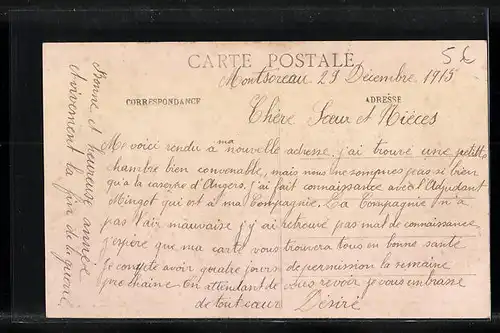 CARTE POSTALE
5€
Montsoreau 29 Décembre 1915
CORRESPONDANCE
ADRESSE
Chère Sœur et Nièces
Me voici rendu a ma nouvelle adresse j'ai trouvé une petitte
chambre bien convenable, mais nous ne sompnes pas si bien
qu'a la caserne d'Angers. j'ai fait connaissance avec l'Adjudant
Mingot qui est à ma Compagnie. La Compagnie n'a
pas l'air mauvaise j'y ai retrouvé pas mal de connaissance
j'espère que ma carte vous trouvera tous en bonne santé
je compte avoir quatre jours de permission la semaine
prochaine En attendant de vous revoir je vous embrasse
de tout cœur Désiré
Bonne et heureuse année
vivement la fin de la guerre